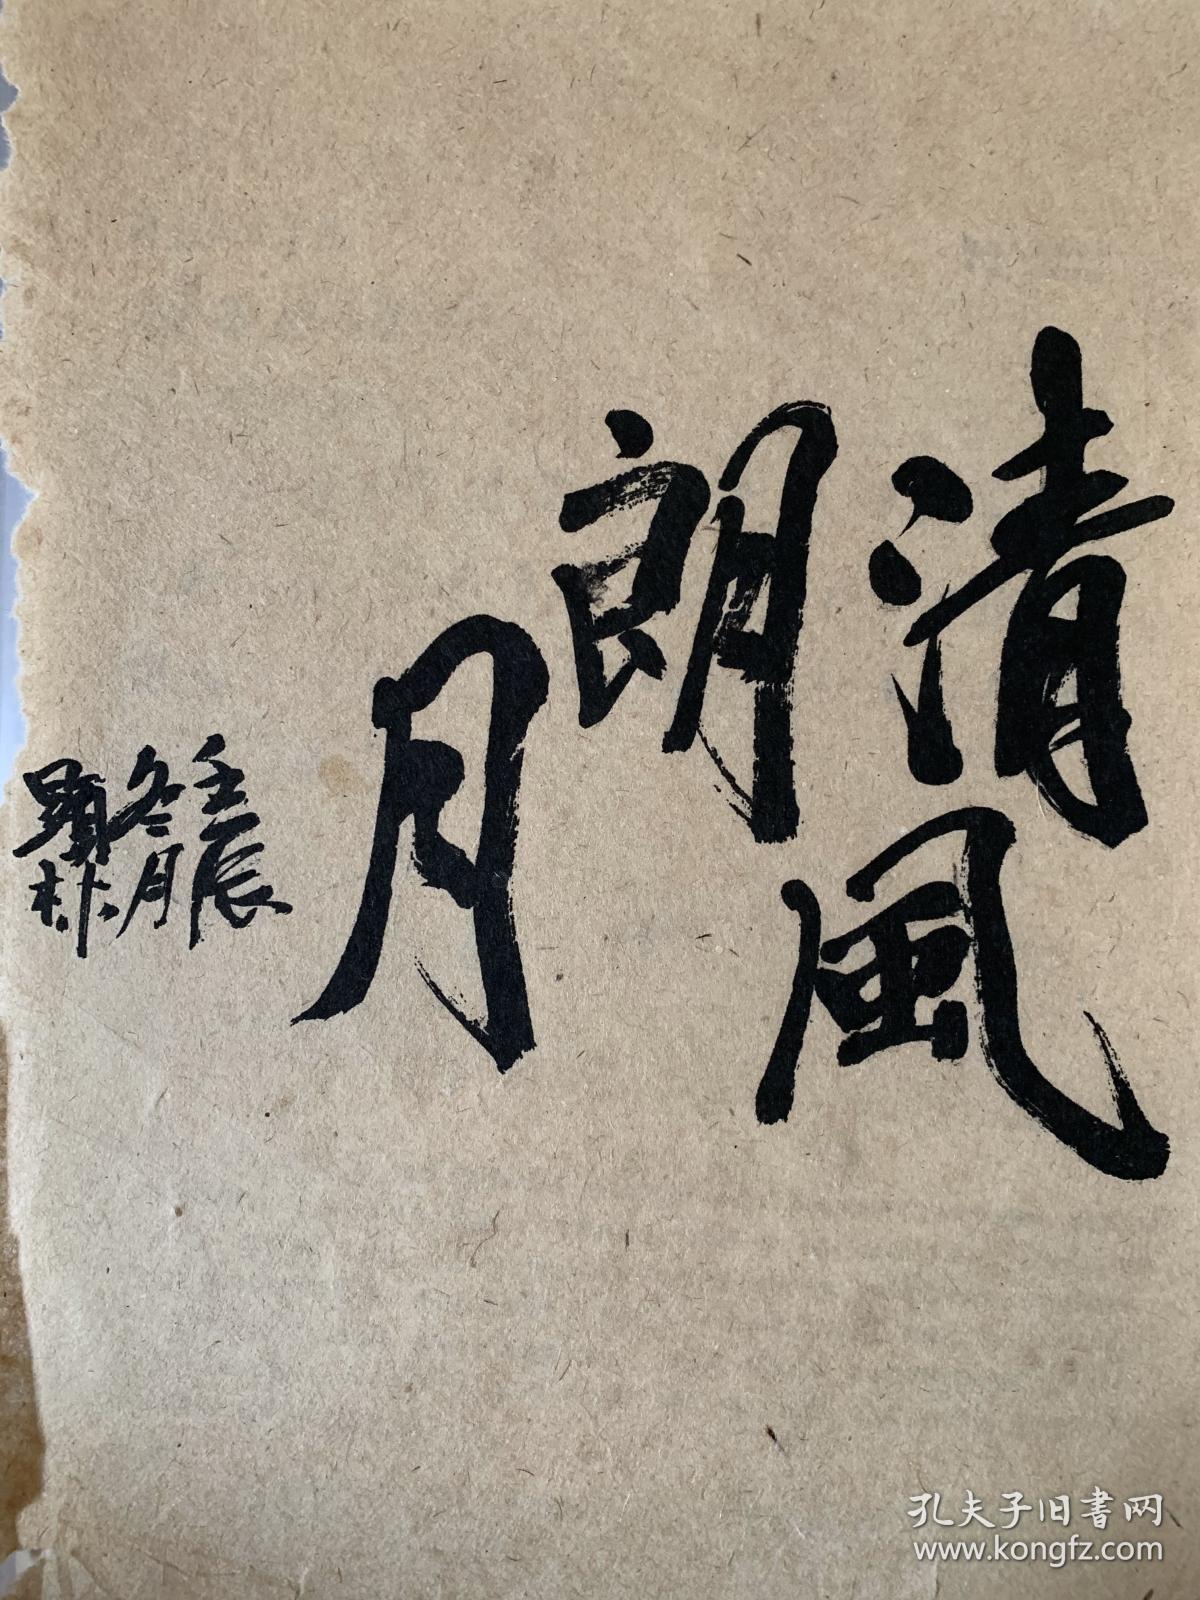 清風
朗月
壬辰
冬月
顯林
孔夫子旧書网
www.kongfz.com